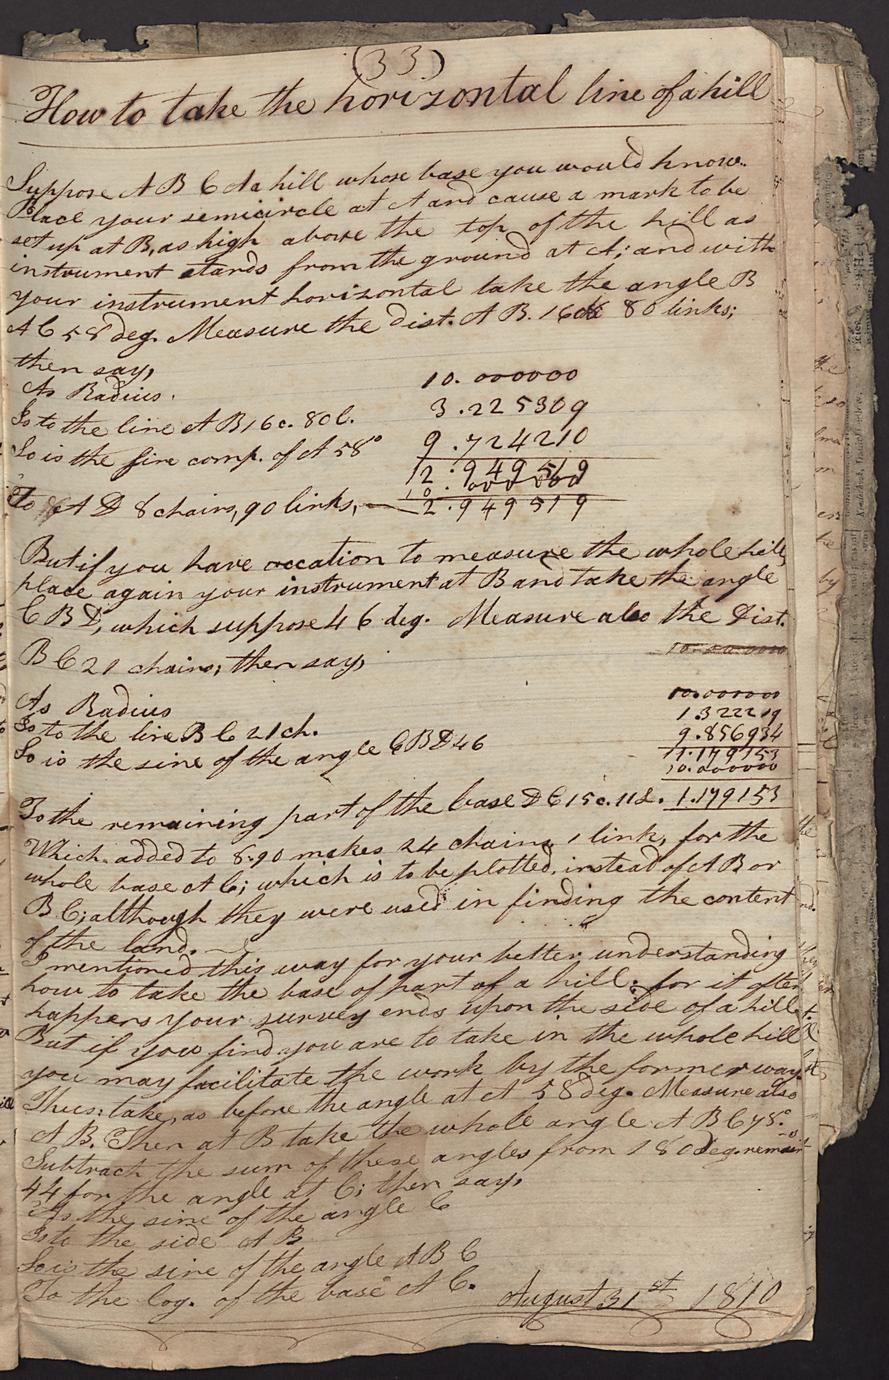 (33)
How to take the horizontal line of a hill
Suppose A B C A a hill whose base you would know.
Place your semicircle at A and cause a mark to be
set up at B, as high above the top of the hill as
instrument stands from the ground at A; and with
your instrument horizontal take the angle B
A C 58 deg. Measure the dist. A B. 16 ch 80 links;
then say,
As Radius. 10.000000
Is to the line A B 16 c. 80 l. 3.225309
So is the sine comp. of A 58° 9.724210
12.949519
10.000000
To A D 8 chains, 90 links, 2.949519
But if you have occation to measure the whole hill,
place again your instrument at B and take the angle
C B D, which suppose 46 deg. Measure also the Dist.
B C 21 chains; then say,
10.000000
As Radius 10.000000
Is to the line B C 21 ch. 1.322219
So is the sine of the angle C B D 46 9.856934
11.179153
10.000000
To the remaining part of the base D C 15 c. 11 l. 1.179153
Which added to 8.90 makes 24 chains 1 link, for the
whole base A C; which is to be plotted, instead of A B or
B C; although they were used in finding the content
of the land.
I mentioned this way for your better understanding
how to take the base of part of a hill: for it often
happens your survey ends upon the side of a hill.
But if you find you are to take in the whole hill
you may facilitate the work by the former way.
Thus: take, as before the angle at A 58 deg. Measure also
A B. Then at B take the whole angle A B C 78°.
Subtract the sum of these angles from 180 deg. remain
44 for the angle at C; then say,
As the sine of the angle C
Is to the side A B
So is the sine of the angle A B C
To the log. of the base A C.
August 31st 1810